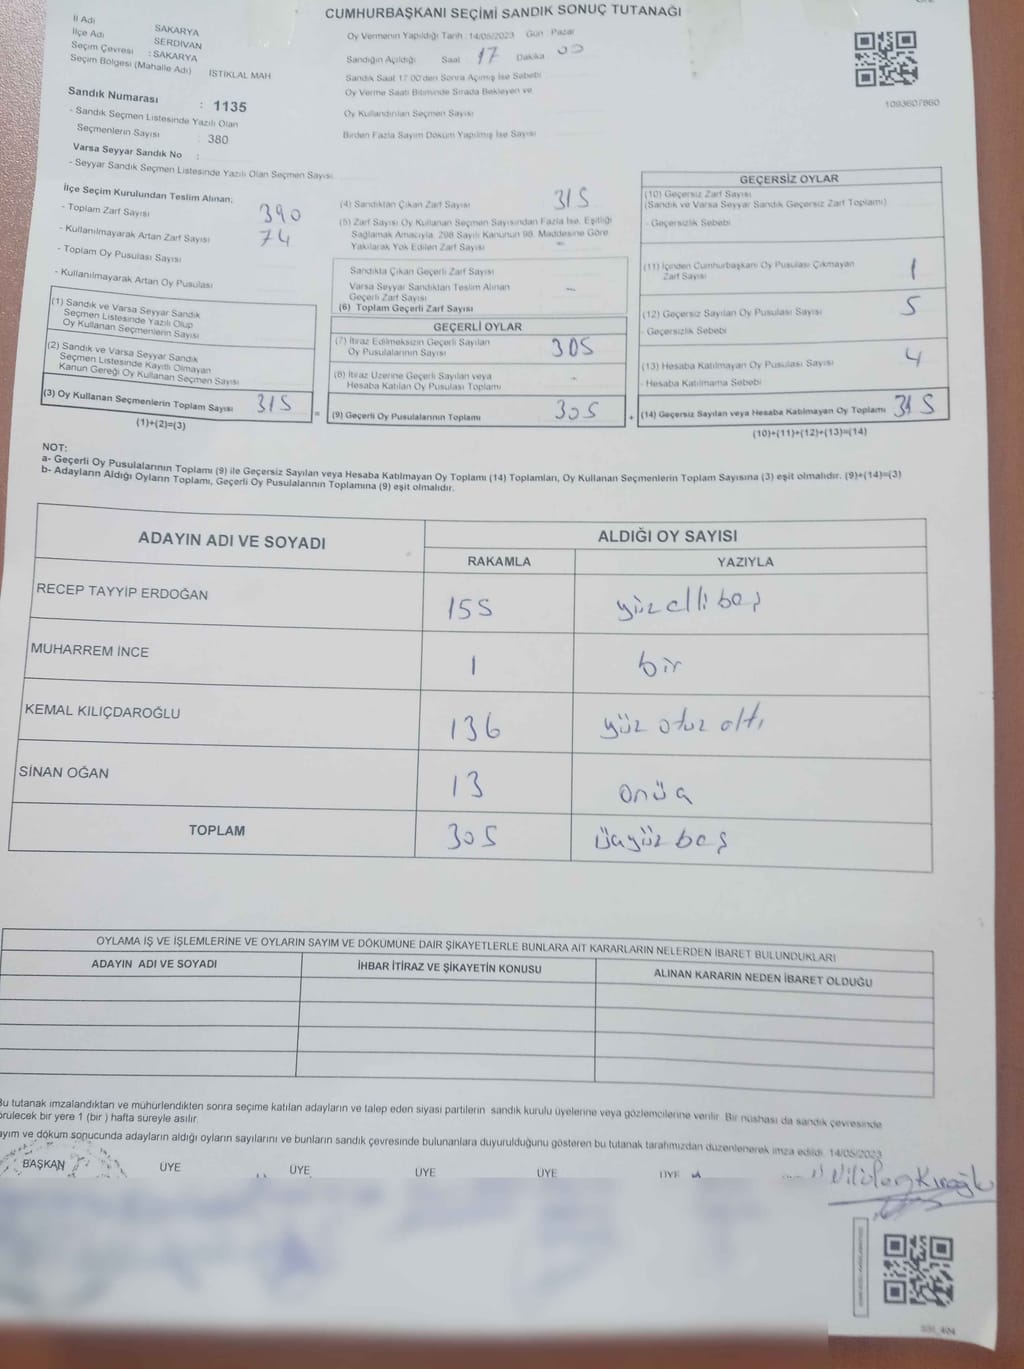 CUMHURBAŞKANI SEÇİMİ SANDIK SONUÇ TUTANAĞI
İl Adı SAKARYA
İlçe Adı SERDİVAN
Seçim Çevresi : SAKARYA
Seçim Bölgesi (Mahalle Adı) İSTİKLAL MAH
Sandık Numarası : 1135
- Sandık Seçmen Listesinde Yazılı Olan
Seçmenlerin Sayısı 380
Varsa Seyyar Sandık No :
- Seyyar Sandık Seçmen Listesinde Yazılı Olan Seçmen Sayısı
Oy Vermenin Yapıldığı Tarih : 14/05/2023 Gün : Pazar
Sandığın Açıldığı Saat 17 Dakika 00
Sandık Saat 17:00'den Sonra Açımış İse Sebebi
Oy Verme Saati Bitiminde Sırada Bekleyen ve
Oy Kullandırılan Seçmen Sayısı
Birden Fazla Sayım Döküm Yapılmış İse Sayısı
1093607860
İlçe Seçim Kurulundan Teslim Alınan;
- Toplam Zarf Sayısı 390
- Kullanılmayarak Artan Zarf Sayısı 74
- Toplam Oy Pusulası Sayısı
- Kullanılmayarak Artan Oy Pusulası
(1) Sandık ve Varsa Seyyar Sandık
Seçmen Listesinde Yazılı Olup
Oy Kullanan Seçmenlerin Sayısı
(2) Sandık ve Varsa Seyyar Sandık
Seçmen Listesinde Kayıtlı Olmayan
Kanun Gereği Oy Kullanan Seçmen Sayısı
(3) Oy Kullanan Seçmenlerin Toplam Sayısı 315 =
(1)+(2)=(3)
(4) Sandıktan Çıkan Zarf Sayısı 315
(5) Zarf Sayısı Oy Kullanan Seçmen Sayısından Fazla İse, Eşitliği
Sağlamak Amacıyla, 298 Sayılı Kanunun 98. Maddesine Göre
Yakılarak Yok Edilen Zarf Sayısı -
Sandıkta Çıkan Geçerli Zarf Sayısı
Varsa Seyyar Sandıktan Teslim Alınan
Geçerli Zarf Sayısı -
(6) Toplam Geçerli Zarf Sayısı
GEÇERLİ OYLAR
(7) İtiraz Edilmeksizin Geçerli Sayılan
Oy Pusulalarının Sayısı 305
(8) İtiraz Üzerine Geçerli Sayılan veya
Hesaba Katılan Oy Pusulası Toplamı -
(9) Geçerli Oy Pusulalarının Toplamı 305 +
GEÇERSİZ OYLAR
(10) Geçersiz Zarf Sayısı
(Sandık ve Varsa Seyyar Sandık Geçersiz Zarf Toplamı)
- Geçersizlik Sebebi
(11) İçinden Cumhurbaşkanı Oy Pusulası Çıkmayan
Zarf Sayısı 1
(12) Geçersiz Sayılan Oy Pusulası Sayısı 5
- Geçersizlik Sebebi
(13) Hesaba Katılmayan Oy Pusulası Sayısı 4
- Hesaba Katılmama Sebebi
(14) Geçersiz Sayılan veya Hesaba Katılmayan Oy Toplamı 315
(10)+(11)+(12)+(13)=(14)
NOT:
a- Geçerli Oy Pusulalarının Toplamı (9) ile Geçersiz Sayılan veya Hesaba Katılmayan Oy Toplamı (14) Toplamları, Oy Kullanan Seçmenlerin Toplam Sayısına (3) eşit olmalıdır. (9)+(14)=(3)
b- Adayların Aldığı Oyların Toplamı, Geçerli Oy Pusulalarının Toplamına (9) eşit olmalıdır.
ADAYIN ADI VE SOYADI ALDIĞI OY SAYISI
RAKAMLA YAZIYLA
RECEP TAYYİP ERDOĞAN 155 yüz elli beş
MUHARREM İNCE 1 bir
KEMAL KILIÇDAROĞLU 136 yüz otuz altı
SİNAN OĞAN 13 onüç
TOPLAM 305 üçyüz beş
OYLAMA İŞ VE İŞLEMLERİNE VE OYLARIN SAYIM VE DÖKÜMÜNE DAİR ŞİKAYETLERLE BUNLARA AİT KARARLARIN NELERDEN İBARET BULUNDUKLARI
ADAYIN ADI VE SOYADI İHBAR İTİRAZ VE ŞİKAYETİN KONUSU ALINAN KARARIN NEDEN İBARET OLDUĞU
Bu tutanak imzalandıktan ve mühürlendikten sonra seçime katılan adayların ve talep eden siyasi partilerin sandık kurulu üyelerine veya gözlemcilerine verilir. Bir nüshası da sandık çevresinde
örülecek bir yere 1 (bir) hafta süreyle asılır.
ayım ve döküm sonucunda adayların aldığı oyların sayılarını ve bunların sandık çevresinde bulunanlara duyurulduğunu gösteren bu tutanak tarafımızdan düzenlenerek imza edildi. 14/05/2023
BAŞKAN ÜYE ÜYE ÜYE ÜYE ÜYE